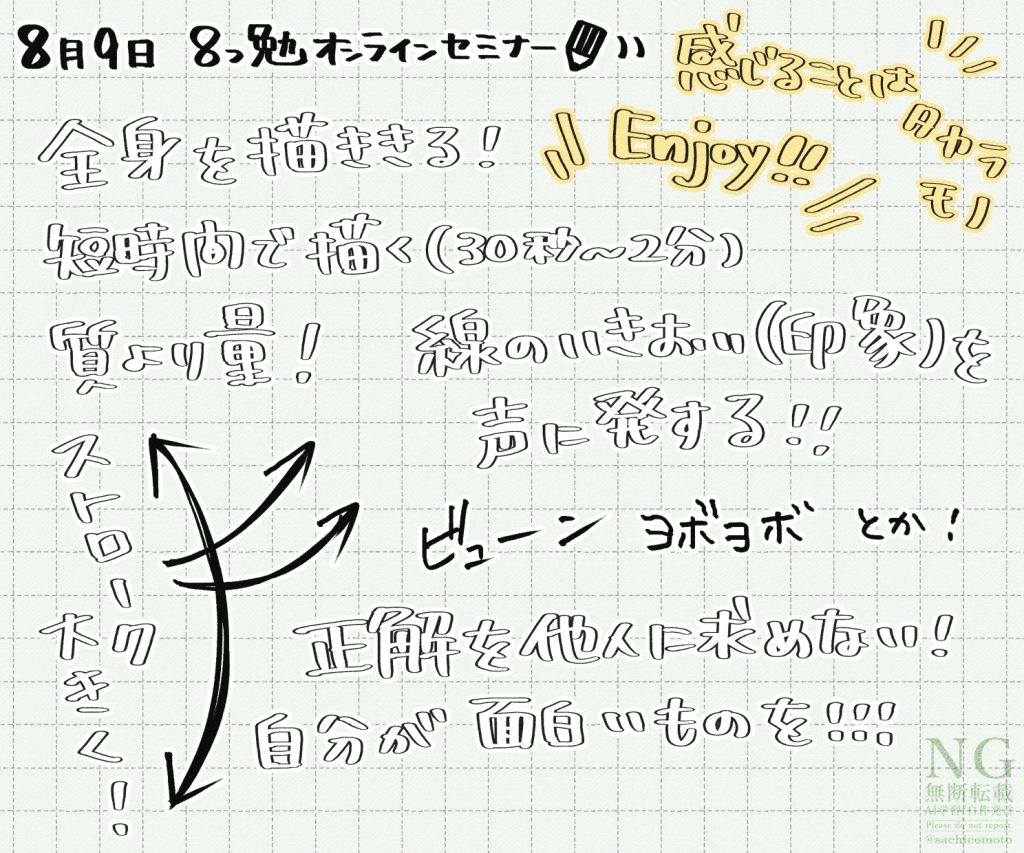 8月9日 8つ勉オンラインセミナー
感じることは
タカラ
モノ
Enjoy!!
全身を描ききる!
短時間で描く(30秒〜2分)
質より量!
線のいきおい(印象)を
声に発する!!
ストローク
大きく!
ビューン ヨボヨボ とか!
正解を他人に求めない!
自分が面白いものを!!!
NG
無断転載
AI学習・自作発言
Please do not repost.
@sachicomoto